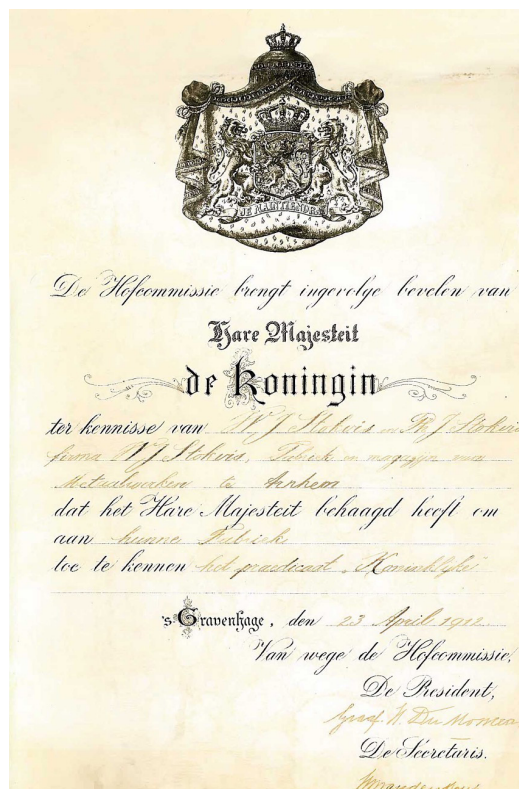 JE MAINTIENDRAI
De Hofcommissie brengt ingevolge bevelen van
Hare Majesteit
de Koningin
ter kennisse van W J Stokvis en Ph. J Stokvis
firma W J Stokvis, Fabriek en magazijn van
Metaalwerken te Arnhem
dat het Hare Majesteit behaagd heeft om
aan hunne Fabriek
toe te kennen het praedicaat "Koninklijke"
's Gravenhage, den 23 April 1912
Van wege de Hofcommissie,
De President,
Graaf
De Secretaris.